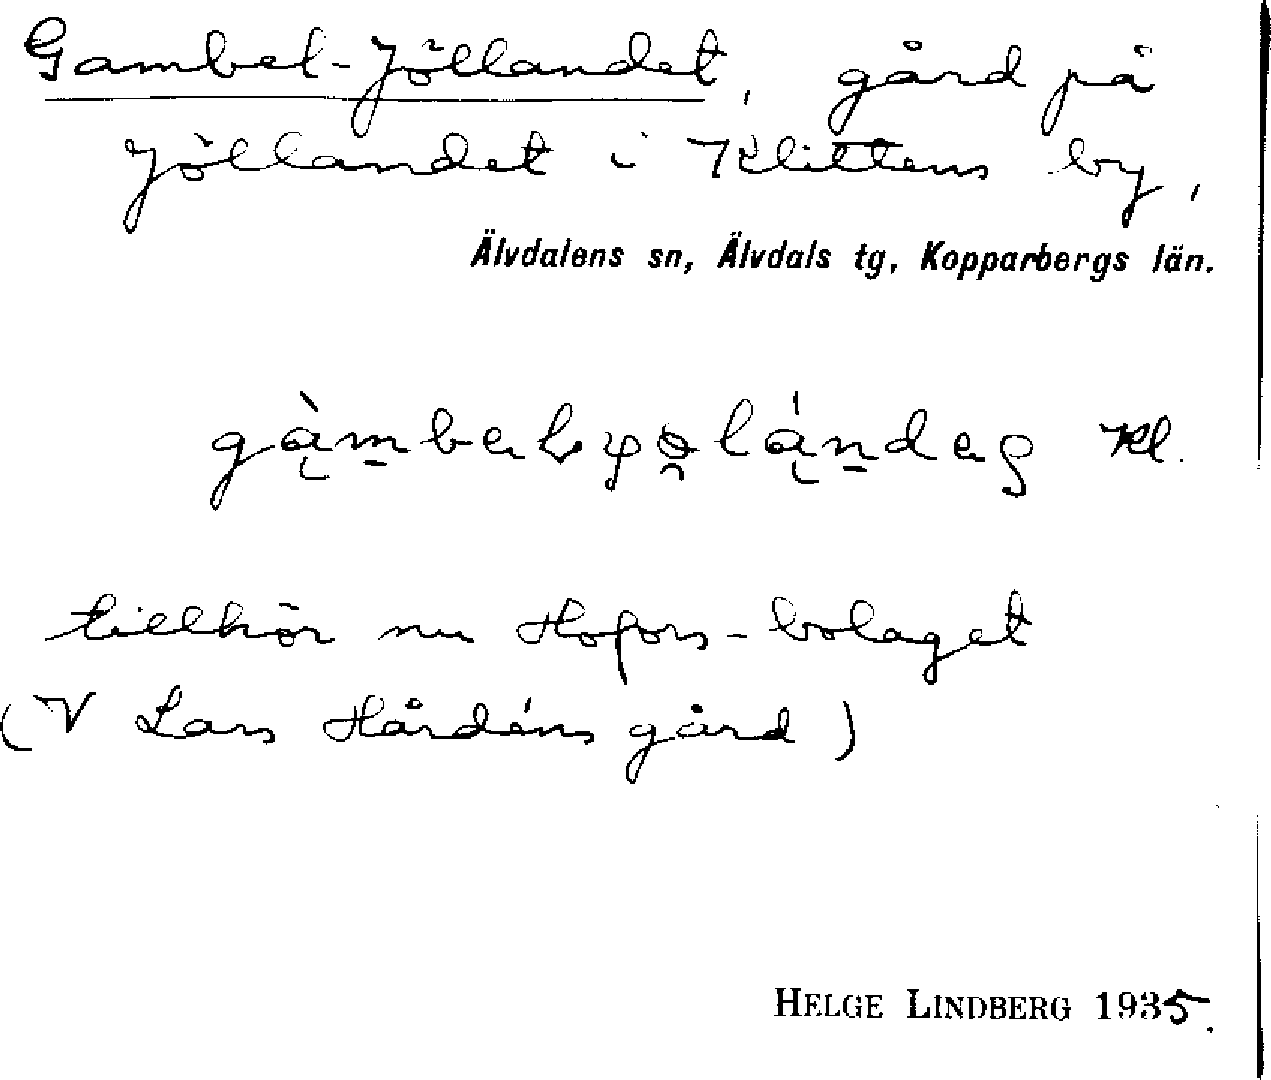 Gambel-Jöllandet, gård på
Jöllandet i Klittens by,
Älvdalens sn, Älvdals tg, Kopparbergs län.
Kl.
tillhör nu Hofors-bolaget
(V Lars Hårdéns gård)
HELGE LINDBERG 1935.